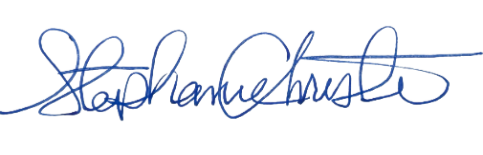 Stephanie Christie